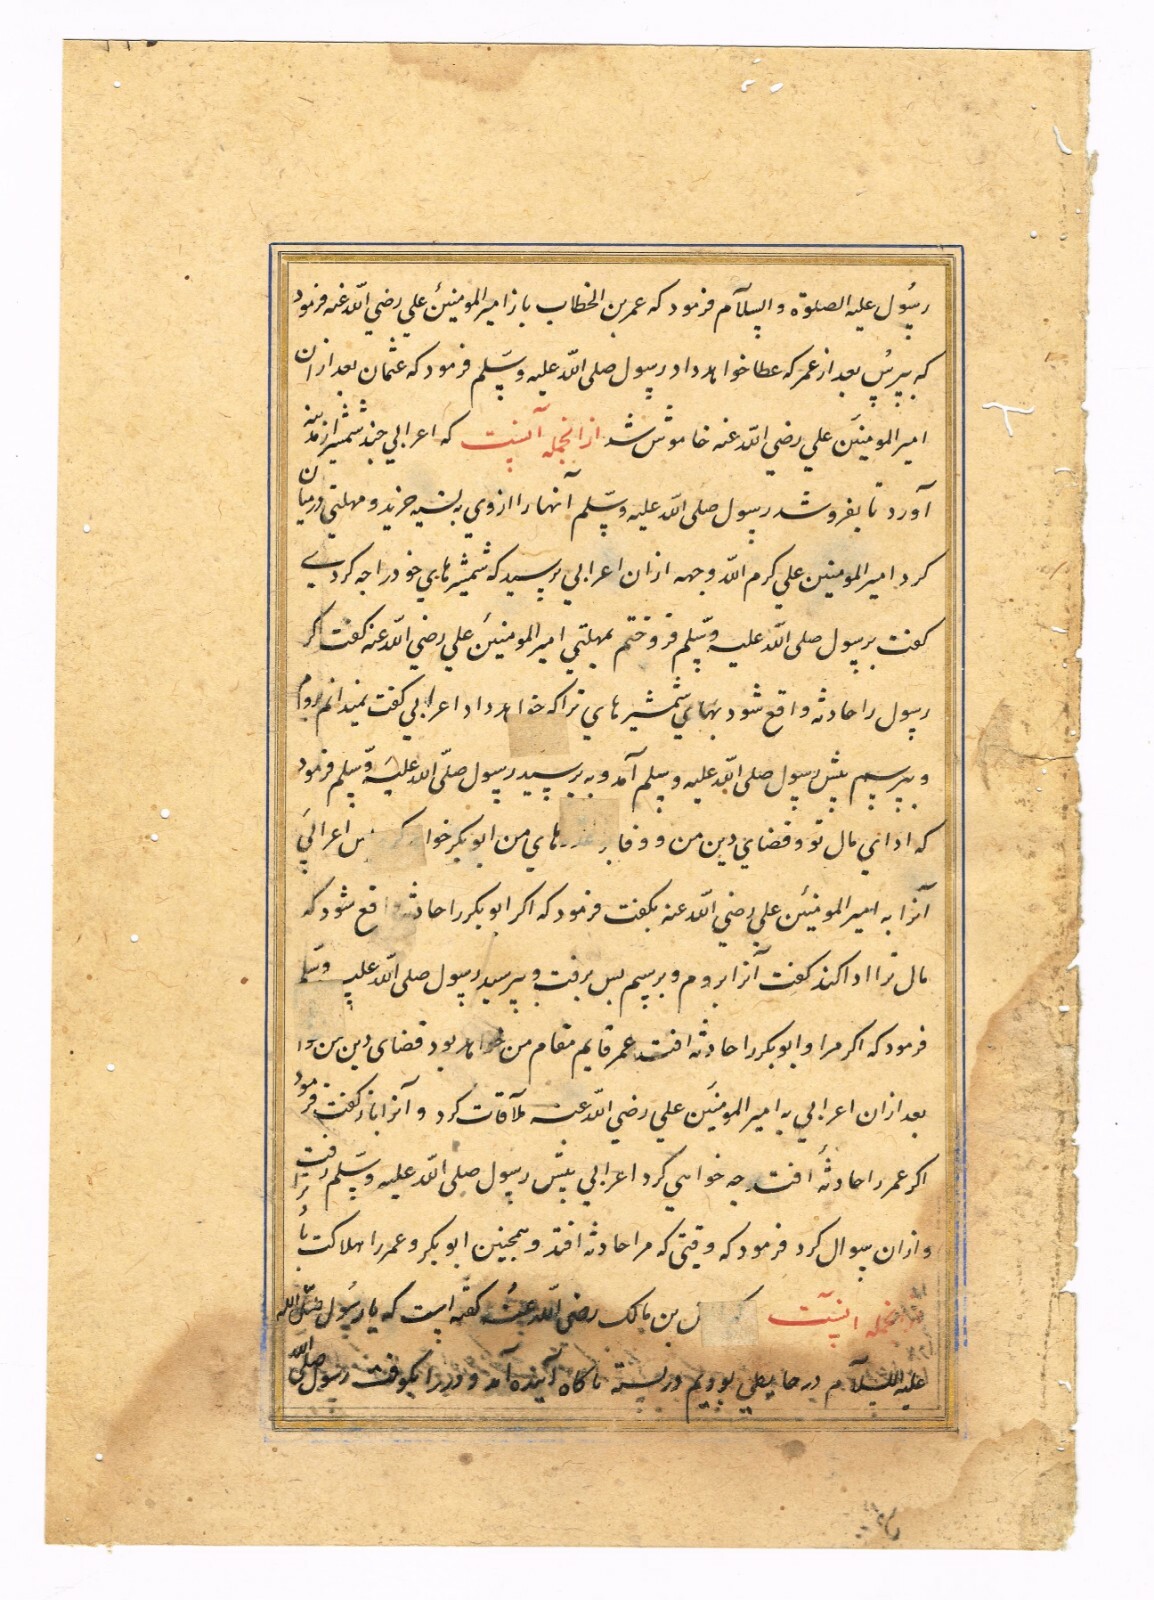 رسول علیه الصلوة و السلام فرمود که عمر بن الخطاب باز امیر المومنین علي رضي الله عنه فرمود
که بپرس بعد از عمر که عطا خواهد داد رسول صلی الله علیه وسلم فرمود که عثمان بعد از ان
امیر المومنین علي رضي الله عنه خاموش شد از انجمله آنست که اعرابي چند شمشیر از مدینه
آورد تا بفروشد رسول صلی الله علیه وسلم آنها را از وي به نسیه خرید و مهلتي در میان
کرد امیر المومنین علي کرم الله وجهه ازان اعرابي پرسید که شمشیرهاي خود را چه کردي
گفت برسول صلی الله علیه وسلم فروختم بمهلتي امیر المومنین علي رضي الله عنه گفت گر
رسول را حادثه واقع شود بهاي شمشیر هاي ترا که خواهد داد اعرابي گفت نمیدانم بروم
و بپرسم پیش رسول صلی الله علیه وسلم آمد و به پرسید رسول صلی الله علیه وسلم فرمود
که اداي مال تو و قضاي دین من و وفا هاي من ابو بکر خوا اعرابي
آنرا به امیر المومنین علي رضي الله عنه بگفت فرمود که اگر ابو بکر را حادثه واقع شود که
مال ترا ادا کند گفت آنرا بروم و بپرسم پس برفت و بپرسید رسول صلی الله علیه وسلم
فرمود که اگر مرا و ابو بکر را حادثه افتد عمر قایم مقام من خواهد بود قضای دین من و ا
بعد ازان اعرابي به امیر المومنین علي رضي الله عنه ملاقات کرد و آنرا باز گفت فرمود
اگر عمر را حادثه افتد چه خواهي کرد اعرابي پیش رسول صلی الله علیه وسلم رفت
و ازان سوال کرد فرمود که وقتي که مرا حادثه افتد و همچنین ابو بکر و عمر را هلاکت باد ترا
انجمله آنست بن مالک رضي الله عنه گفته است که یا رسول صلی الله
علیه السلام در حایطي بودیم در بسته ناگاه آینده آمد و در را بکوفت رسول صلی الله